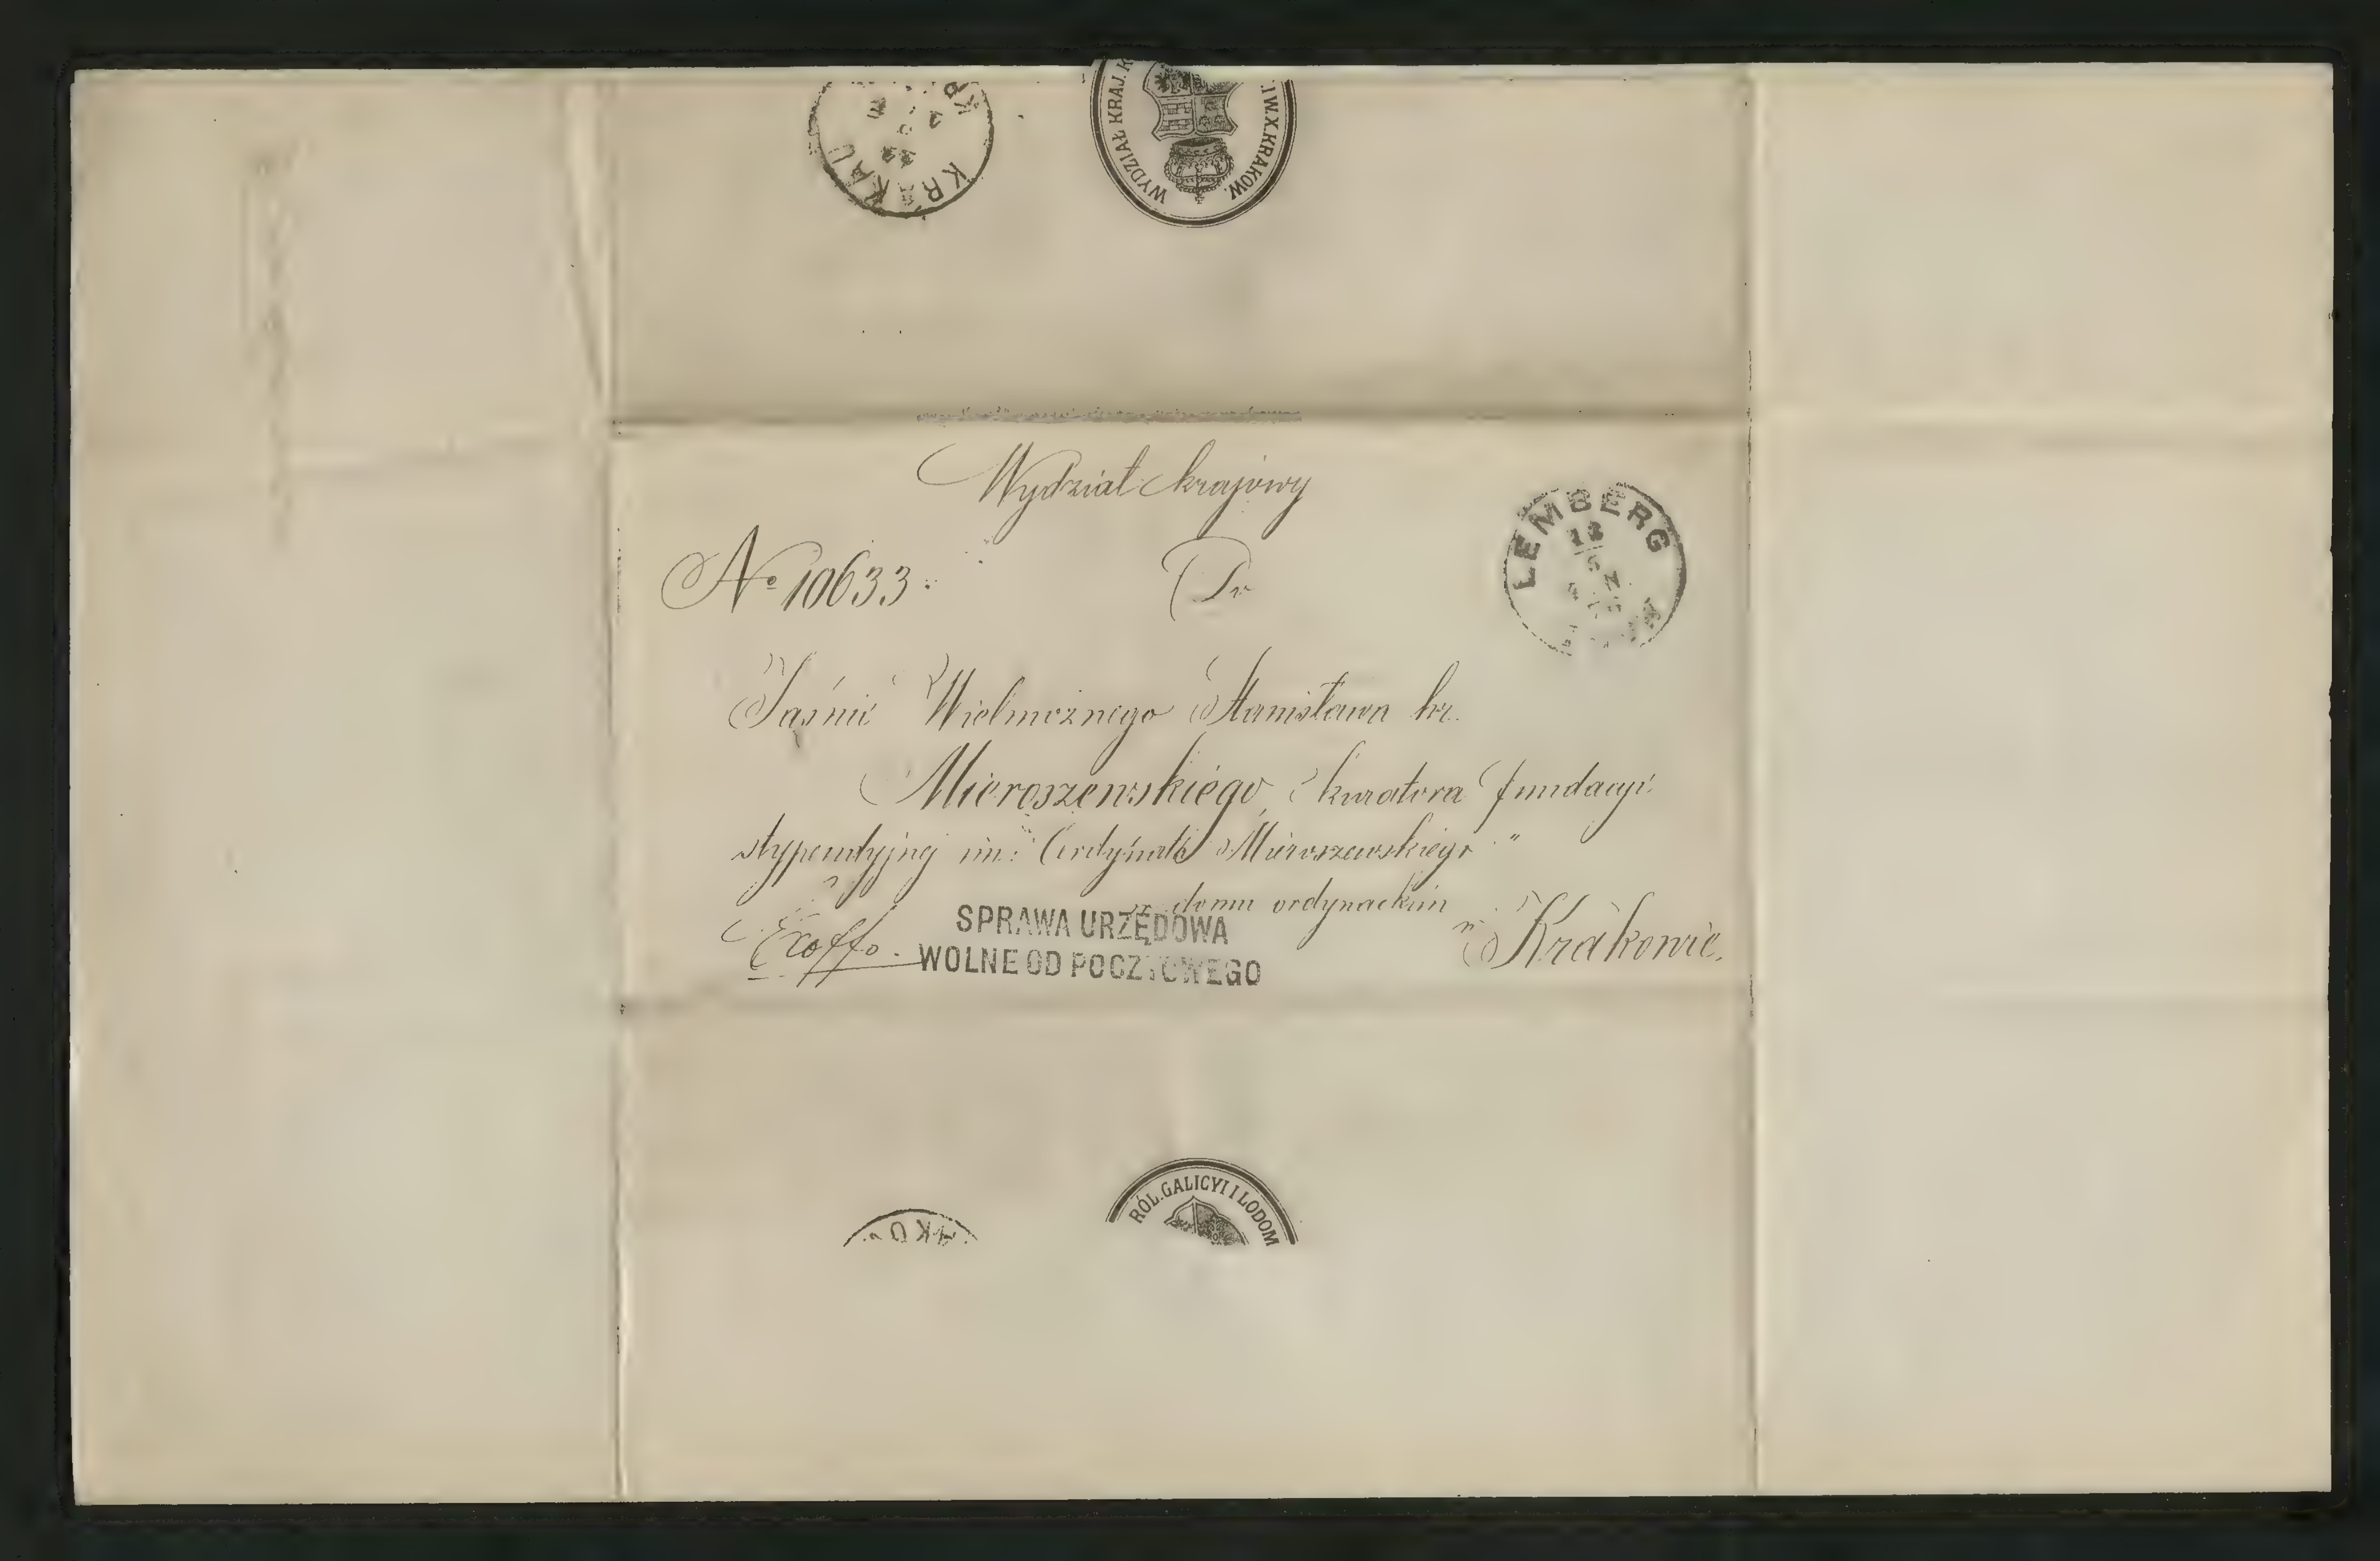 KRAKAU
WYDZIAŁ KRAJ. K
I W.X.KRAKOW.
Wydział krajowy
No 10633.
Do
LEMBERG
Jaśnie Wielmożnego Stanisława hr.
Mieroszewskiego, kuratora fundacyi
stypendyjnej im: Ordynata Mieroszewskiego"
w domu ordynackim
w Krakowie.
Exoffo.
SPRAWA URZĘDOWA
WOLNE OD POCZTOWEGO
RÓL.GALICYI I LODOM
AKO